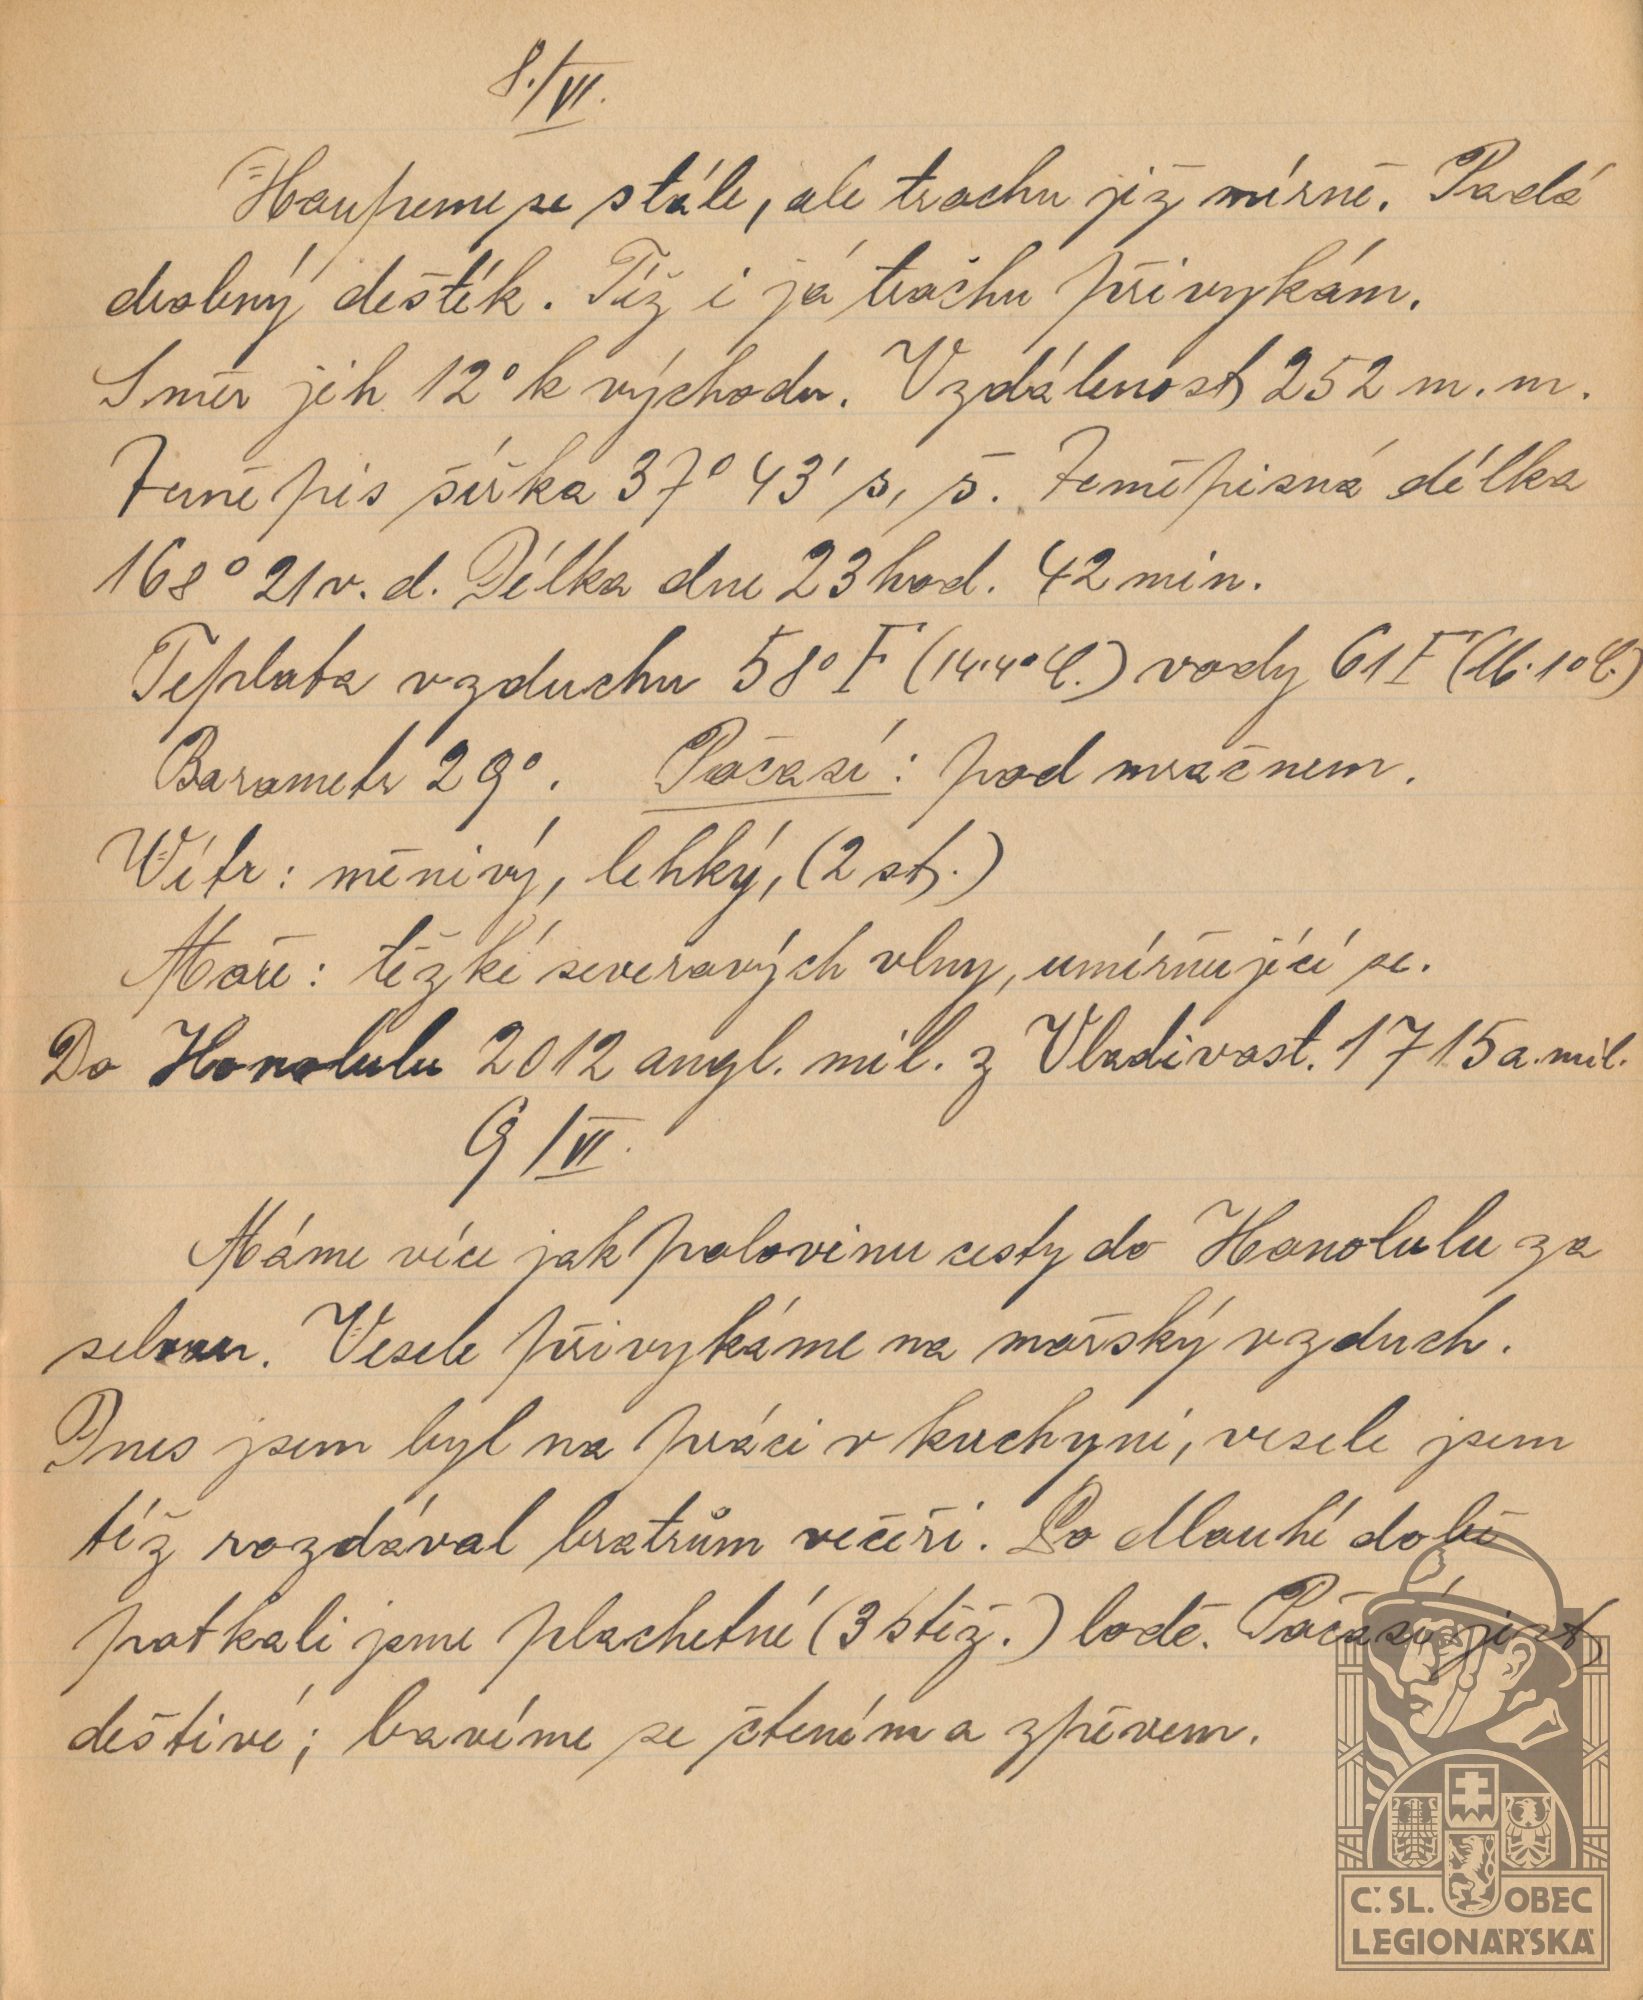 8./VI.
Houpeme se stále, ale trochu již mírně. Padá
drobný deštík. Též i já trochu přivykám.
Směr jih 12° k východu. Vzdálenost 252 m. m.
Zeměpis šířka 37° 43' s. š. Zeměpisná délka
168° 21 v. d. Délka dne 23 hod. 42 min.
Teplota vzduchu 58° F (14.4° C.) vody 61 F (16.1° C.)
Barometr 29°. Počasí: pod mračnem.
Vítr: měnivý, lehký, (2 st.)
Moře: těžké severových vlny, umírňující se.
Do Honolulu 2012 angl. mil. z Vladivost. 1715 a. mil.
9/VI.
Máme více jak polovinu cesty do Honolulu za
sebou. Vesele přivykáme na mořský vzduch.
Dnes jsem byl na práci v kuchyni, vesele jsem
též rozdával bratrům večeři. Po dlouhé době
potkali jsme plachetné (3 stěž.) lodě. Počasí jest
deštivé; bavíme se čtením a zpěvem.
Č. SL. OBEC
LEGIONÁŘSKÁ